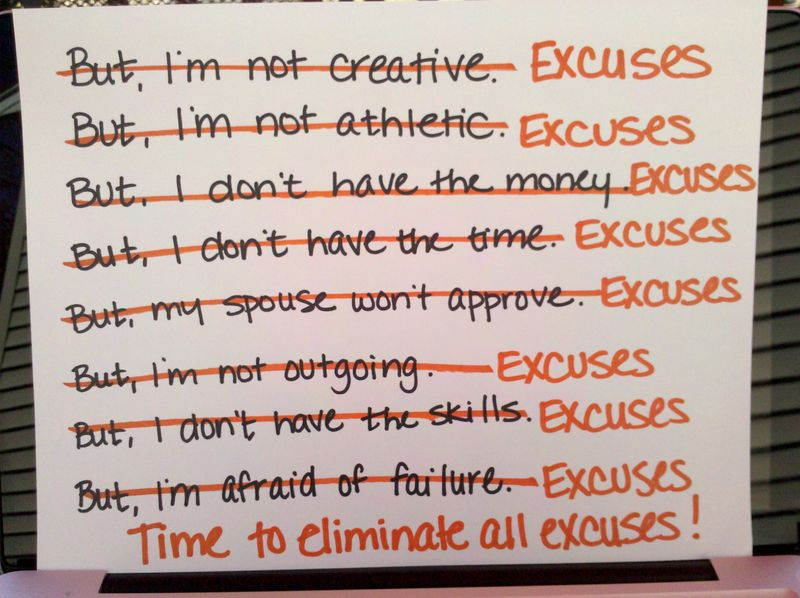 But, I'm not creative. Excuses
But, I'm not athletic. Excuses
But, I don't have the money. Excuses
But, I don't have the time. Excuses
But, my spouse won't approve. Excuses
But, I'm not outgoing. Excuses
But, I don't have the skills. Excuses
But, I'm afraid of failure. Excuses
Time to eliminate all excuses!